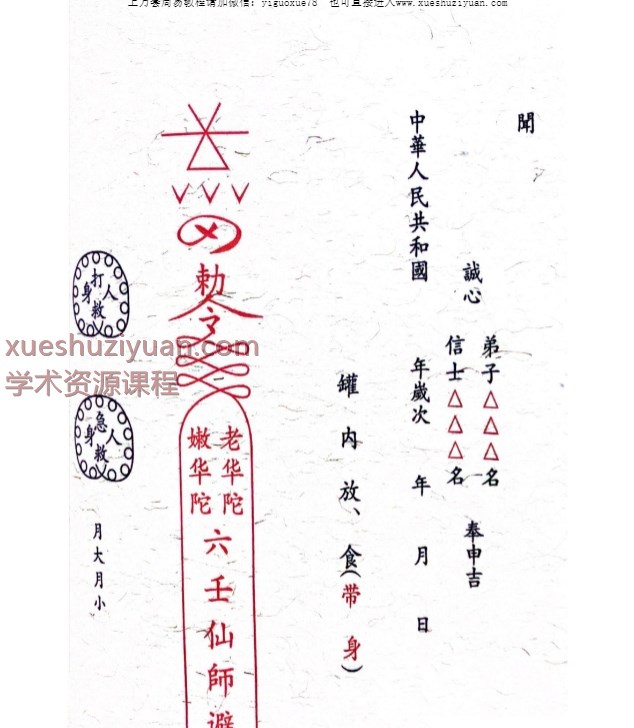 上万套周易教程请加微信：yiguoxue78 也可直接进入www.xueshuziyuan.com
聞
弟子△△△名
誠心
信士△△△名
奉申吉
中華人民共和國 年歲次 年 月 日
罐內放、食(带身)
勅令
老华陀
嫩华陀
六壬仙師避
打救身人
急救身人
月大月小
xueshuziyuan.com
学术资源课程